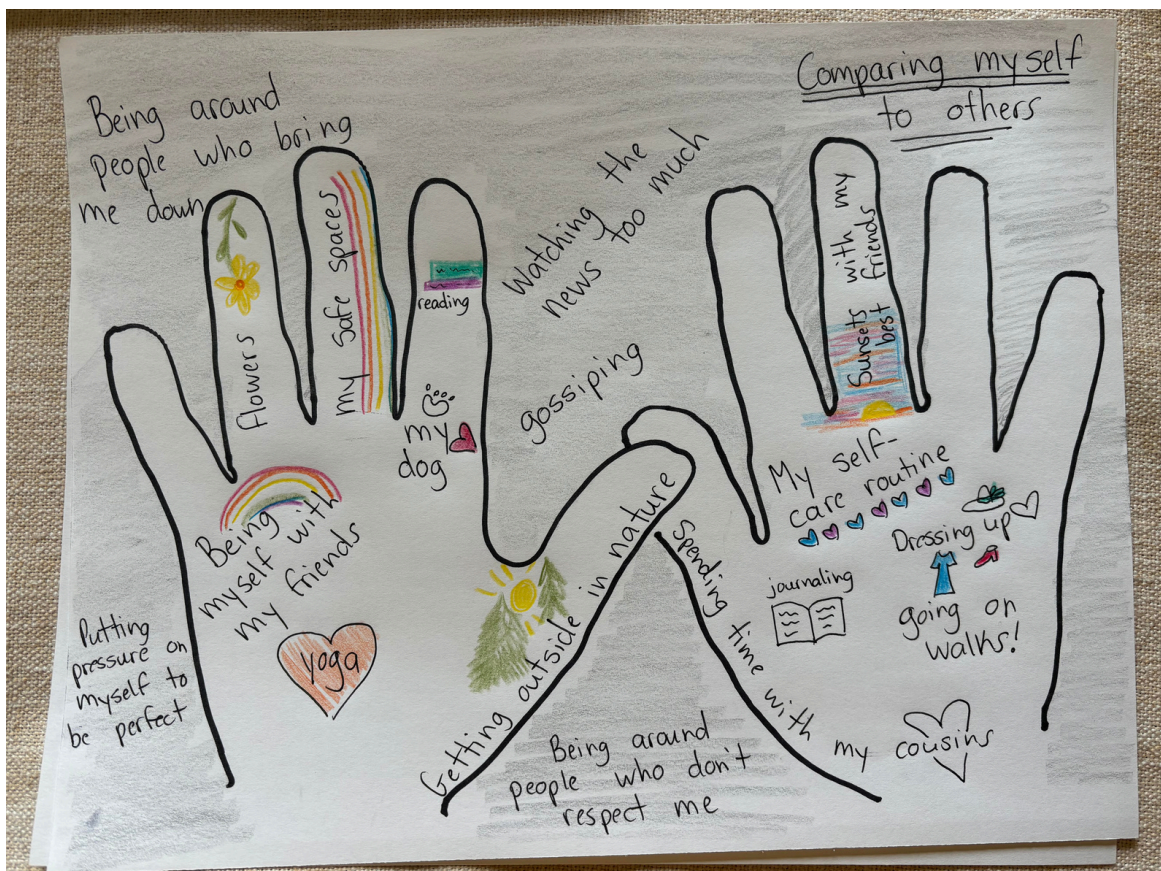 Being around
people who bring
me down
Comparing myself
to others
Watching the
news too much
gossiping
flowers
my safe spaces
reading
my
dog
Being
myself with
my friends
yoga
Putting
pressure on
myself to
be perfect
Getting outside in nature
Being around
people who don't
respect me
Sunsets with my
best friends
My self-
care routine
Dressing up
journaling
going on
walks!
Spending time with my cousins